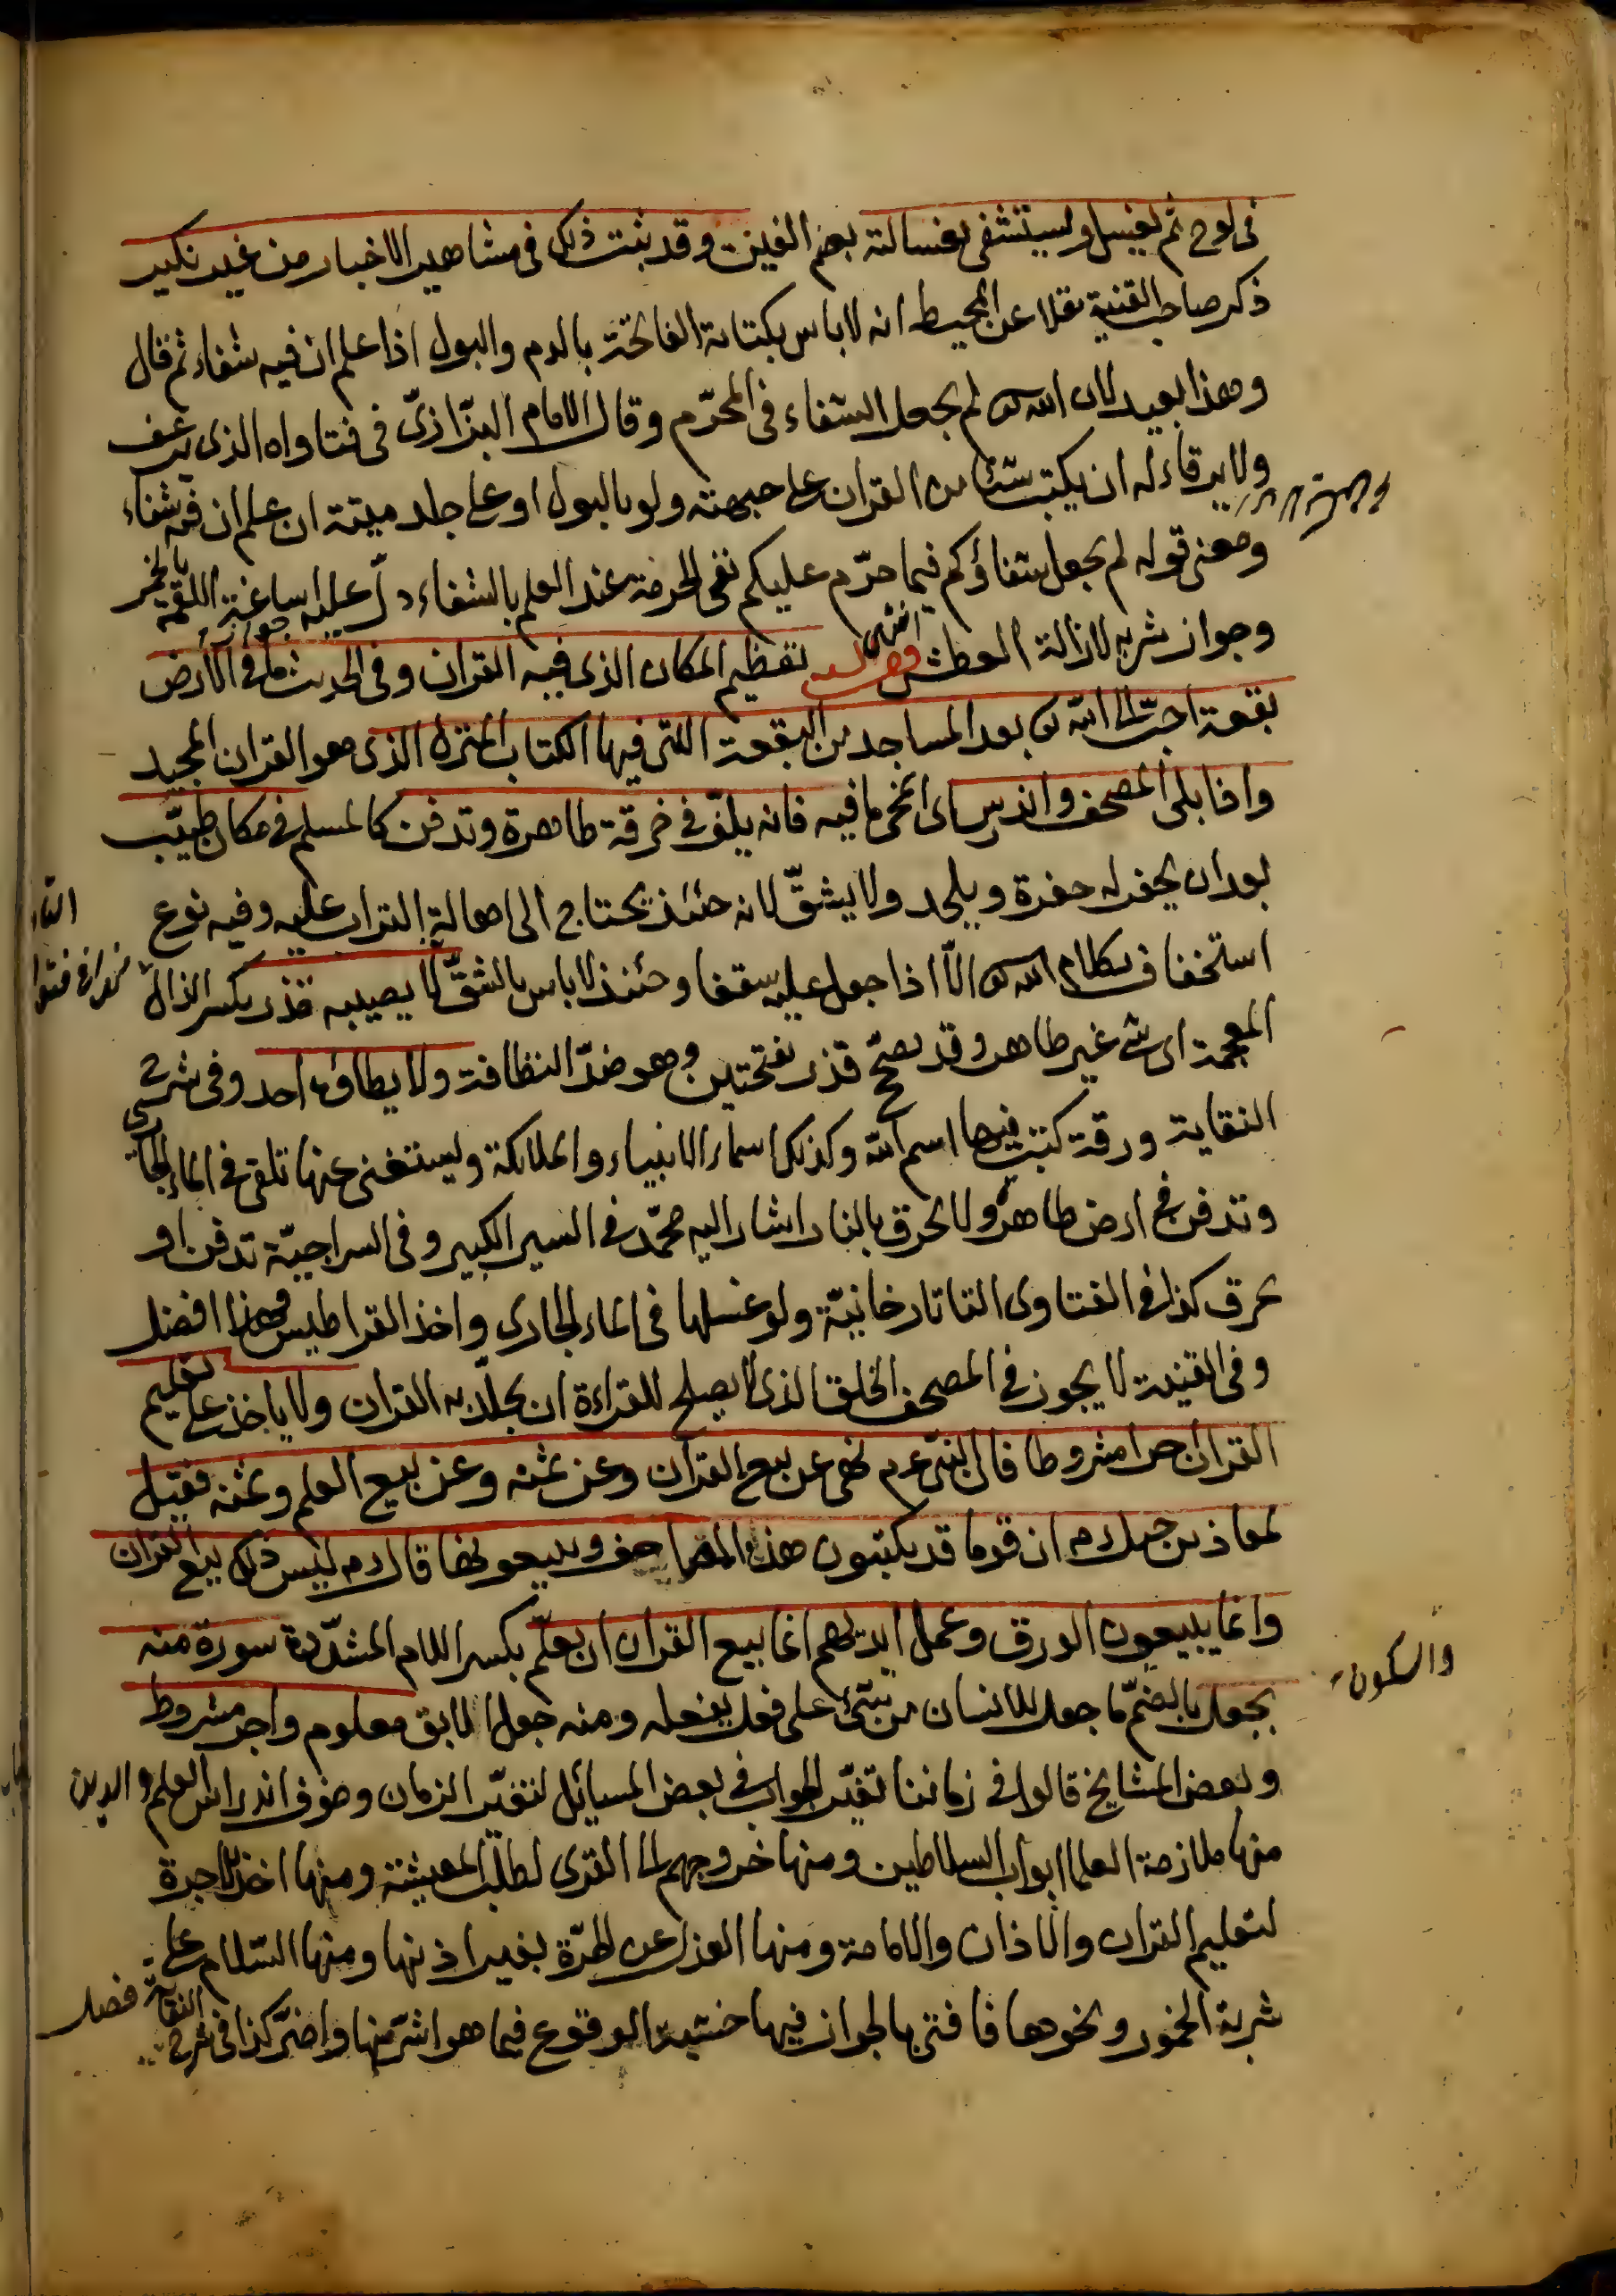 في لوح ثم يغسل ويستشفى بغسالته بضم الغين وقد ثبت ذلك في مشاهير الاخبار من غير نكير
ذكر صاحب القنية نقلا عن المحيط انه لا باس بكتابة الفاتحة بالدم والبول اذا علم ان فيه شفاء ثم قال
وهذا بعيد لان الله تع لم يجعل الشفاء في المحرّم وقال الامام البزّازىّ في فتاواه الذى يرعف
ولا يرقاء له ان يكتب شئا من القران على جبهته ولو بالبول او على جلد ميتة ان علم ان فيه شفاء
ومعنى قوله لم يجعل شفاؤكم فيما حرّم عليكم نفى الحرمة عند العلم بالشفاء دلّ عليه اساغة اللقمة بالخمر
وجواز شربه لازالة العطش انتهى فصل تعظيم المكان الذى فيه القران وفي الحديث ما في الارض
بقعة احبّ الى الله تع بعد المساجد من البقعة التى فيها الكتاب المنزل الذى هو القران المجيد
واذا بلى المصحف واندرس اى انمحى ما فيه فانه يلفّ في خرقة طاهرة وتدفن كالمسلم في مكان طيّب
بعد ان يحفر له حفرة ويلحد ولا يشقّ لانه حئنذ يحتاج الى اهالة التراب عليه وفيه نوع
استخفاف بكلام الله تع الّا اذا جعل عليه سقفا وحئنذ لا باس بالشقّ لا يصيبه قذر بكسر الذال
المعجمة اى شئ غير طاهر وقد يصحّ قذر بفتحتين وهو ضدّ النظافة ولا يطاؤه احد وفي شرح
النقاية ورقة كتبت فيها اسم الله وكذلك اسماء الانبياء والملائكة ويستغنى عنها تلقى في الماء الجارى
وتدفن في ارض طاهرة ولا تحرق بالنار اشار اليه محمّد في السير الكبير وفي السراجيّة تدفن او
تحرق كذا في الفتاوى التاتارخانيّة ولو غسلها في الماء الجارى واخذ القراطيس فهذا افضل
وفي القنية لا يجوز في المصحف الخلق الذى لا يصلح للقراءة ان يجلّد به القران ولا ياخذ على تعليم
القران اجرا مشروطا قال النبىّ عم نهى عن بيع القران وعن ثمنه وعن بيع العلم وثمنه فقيل
لمعاذ بن جبل رم ان قوما قد يكتبون هذه المصاحف ويبيعونها قال رم ليس ذلك بيع القران
وانما يبيعون الورق وعمل ايديهم انما بيع القران ان يعلّم بكسر اللام المشدّدة سورة منه
بجعل بالضمّ ما جعل للانسان من شئ على فعل يفعله ومنه جعل الابق معلوم واجر مشروط
والسكون
وبعض المشايخ قالوا في زماننا تغيّر الجواب في بعض المسايل لتغيّر الزمان وخوف اندراس العلم والدين
منها ملازمة العلما ابواب السلاطين ومنها خروجهم الى القرى لطلب المعيشة ومنها اخذ الاجرة
لتعليم القران والاذان والامامة ومنها العزل عن الحرّة بغير اذنها ومنها السّلام على
شربة الخمور ونحوها فافتى بالجواز فيها خشية الوقوع فيما هو اشرّ منها واضرّ كذا في شرح النقاية فصل